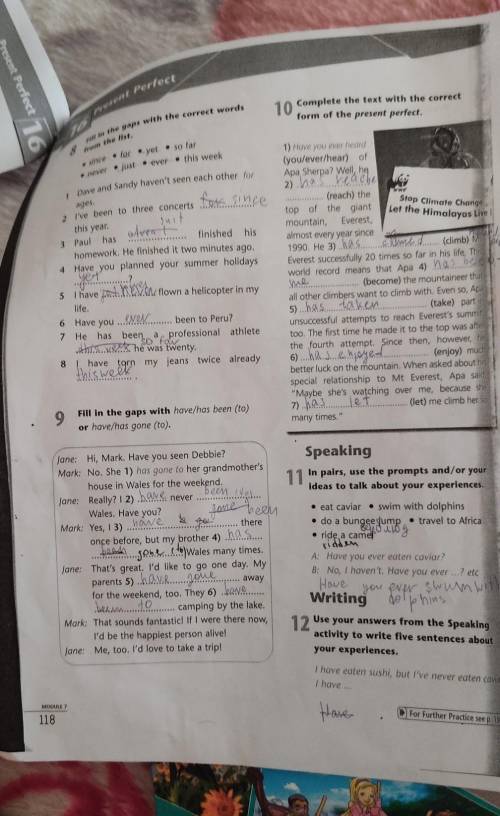 Present Perfect 16
Present Perfect
8 Fill in the gaps with the correct words
from the list.
• since • for • yet • so far
• never • just • ever • this week
1 Dave and Sandy haven't seen each other for
ages.
2 I've been to three concerts since
this year.
3 Paul has just finished his
homework. He finished it two minutes ago.
4 Have you planned your summer holidays
yet ?
5 I have never flown a helicopter in my
life.
6 Have you ever been to Peru?
7 He has been a professional athlete
so far he was twenty.
8 I have torn my jeans twice already
this week.
9 Fill in the gaps with have/has been (to)
or have/has gone (to).
Jane: Hi, Mark. Have you seen Debbie?
Mark: No. She 1) has gone to her grandmother's
house in Wales for the weekend.
Jane: Really? I 2) have never been
Wales. Have you? gone been
Mark: Yes, I 3) have there
once before, but my brother 4) has
gone (to) Wales many times.
Jane: That's great. I'd like to go one day. My
parents 5) have gone away
for the weekend, too. They 6) have
been to camping by the lake.
Mark: That sounds fantastic! If I were there now,
I'd be the happiest person alive!
Jane: Me, too. I'd love to take a trip!
MODULE 7
118
10 Complete the text with the correct
form of the present perfect.
1) Have you ever heard
(you/ever/hear) of
Apa Sherpa? Well, he
2) has reache
(reach) the
top of the giant
mountain, Everest,
almost every year since
1990. He 3) has climed (climb)
Everest successfully 20 times so far in his life.
world record means that Apa 4) has be
me (become) the mountaineer
all other climbers want to climb with. Even so,
5) has taken (take) part
unsuccessful attempts to reach Everest's
too. The first time he made it to the top was
the fourth attempt. Since then, however,
6) has enjoyed (enjoy) much
better luck on the mountain. When asked about
special relationship to Mt Everest, Apa said
"Maybe she's watching over me, because she
7) has let (let) me climb her
many times."
WWF
Stop Climate Change
Let the Himalayas Live
Speaking
11 In pairs, use the prompts and/or your
ideas to talk about your experiences.
• eat caviar • swim with dolphins
• do a bungee jump • travel to Africa
• ride a camel
ridden
A: Have you ever eaten caviar?
B: No, I haven't. Have you ever ...? etc
Have you ever swum with
dolphins
Writing
12 Use your answers from the Speaking
activity to write five sentences about
your experiences.
I have eaten sushi, but I've never eaten
I have ...
Have
For Further Practice see p.